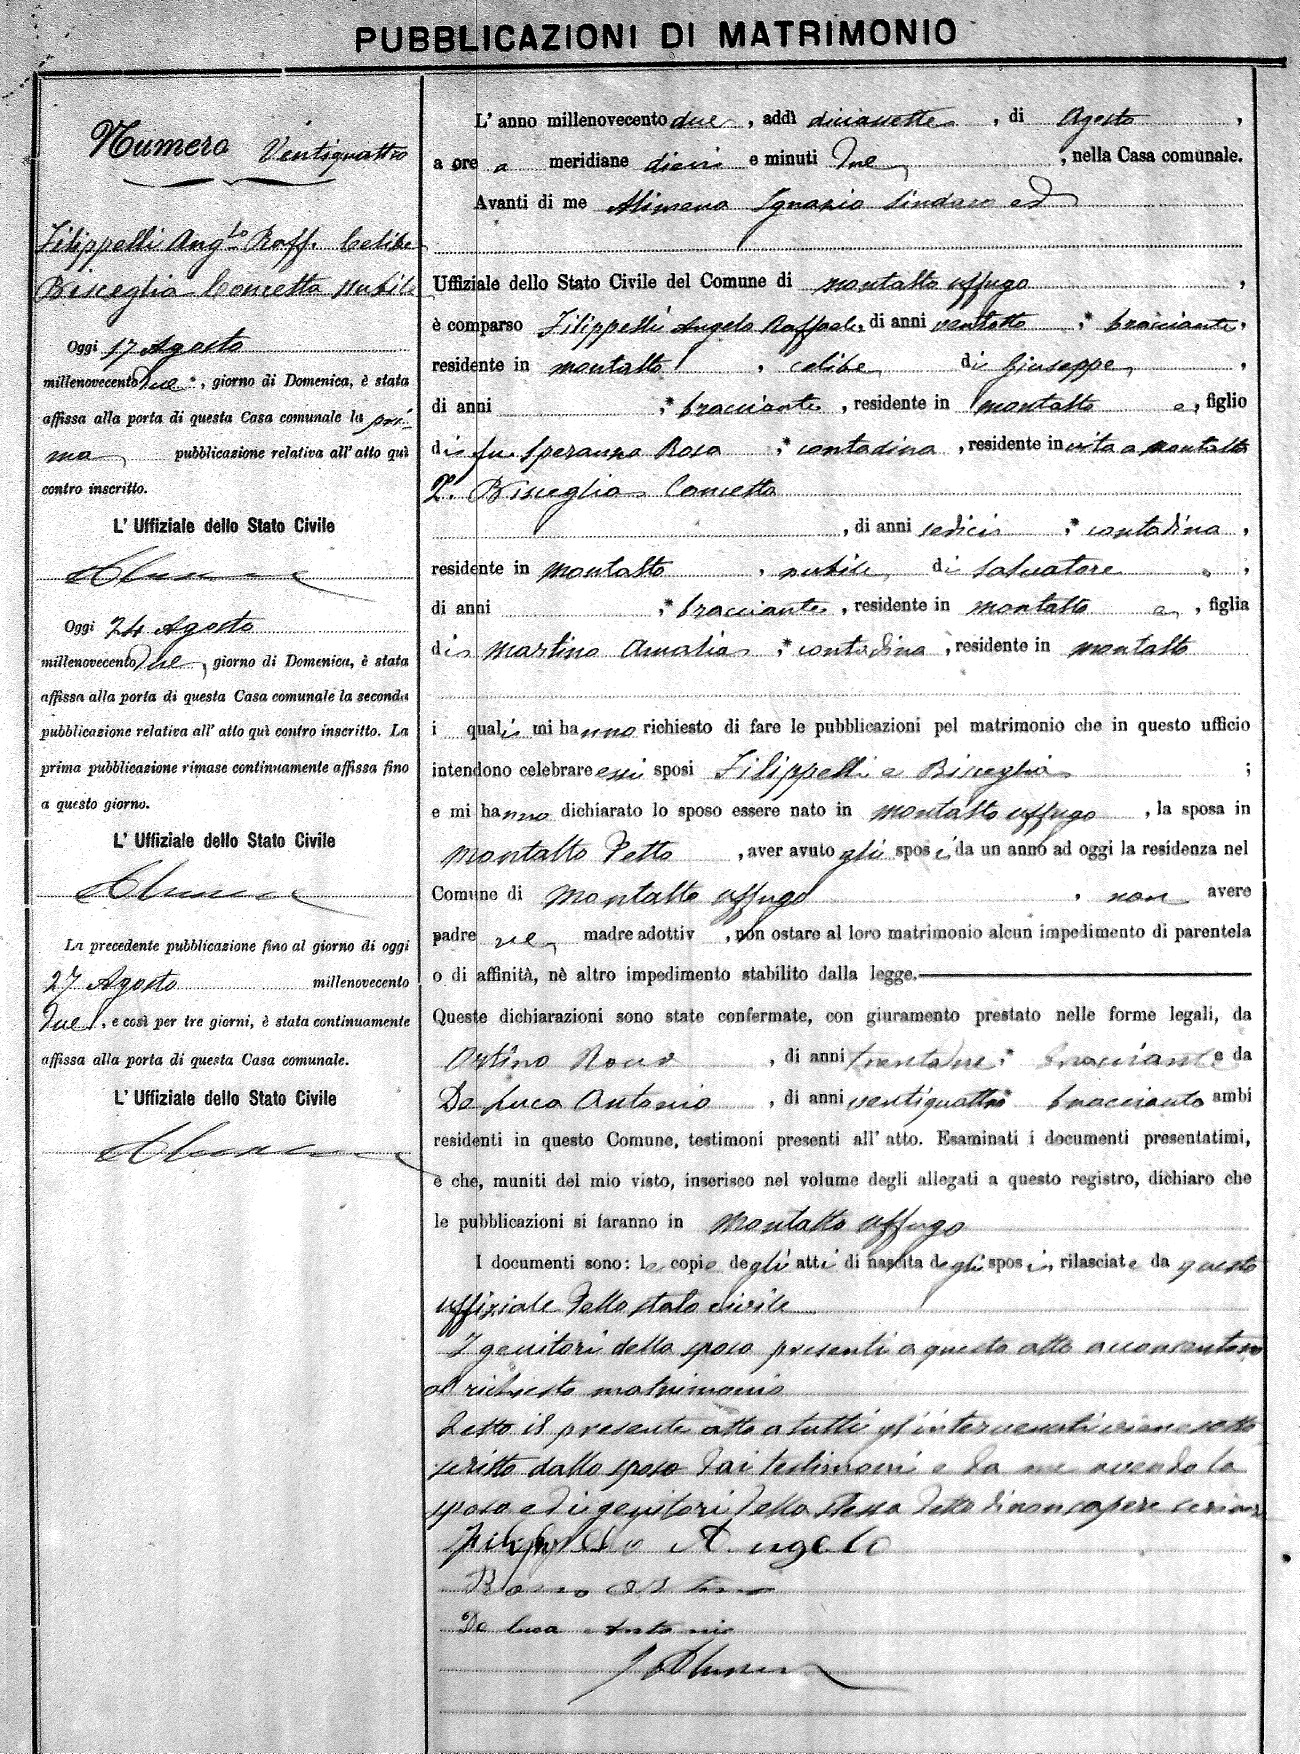 PUBBLICAZIONI DI MATRIMONIO
Numero Ventiquattro
Filippelli Ang.lo Raff. Celibe
Bisceglia Concetta nubile
Oggi 17 Agosto
millenovecento due, giorno di Domenica, è stata
affissa alla porta di questa Casa comunale la pri-
ma pubblicazione relativa all' atto quì
contro inscritto.
L' Uffiziale dello Stato Civile
Oggi 24 Agosto
millenovecento due, giorno di Domenica, è stata
affissa alla porta di questa Casa comunale la seconda
pubblicazione relativa all' atto quì contro inscritto. La
prima pubblicazione rimase continuamente affissa fino
a questo giorno.
L' Uffiziale dello Stato Civile
La precedente pubblicazione fino al giorno di oggi
27 Agosto millenovecento
due, e così per tre giorni, è stata continuamente
affissa alla porta di questa Casa comunale.
L' Uffiziale dello Stato Civile
L' anno millenovecento due, addì diciassette, di Agosto,
a ore a meridiane dieci e minuti due, nella Casa comunale.
Avanti di me Alimena Ignazio Sindaco ed
Uffiziale dello Stato Civile del Comune di Montalto Uffugo,
è comparso Filippelli Angelo Raffaele, di anni ventotto, bracciante,
residente in Montalto, celibe di Giuseppe,
di anni , bracciante, residente in Montalto e, figlio
di fu Speranza Rosa, contadina, residente in vita a Montalto
2°. Bisceglia Concetta
, di anni sedici, contadina,
residente in Montalto, nubile, di Salvatore,
di anni , bracciante, residente in Montalto e, figlia
di Martino Amalia, contadina, residente in Montalto
i quali mi hanno richiesto di fare le pubblicazioni pel matrimonio che in questo ufficio
intendono celebrare essi sposi Filippelli e Bisceglia ;
e mi hanno dichiarato lo sposo essere nato in Montalto Uffugo, la sposa in
Montalto detto, aver avuto gli sposi da un anno ad oggi la residenza nel
Comune di Montalto Uffugo, non avere
padre ne madre adottiv , non ostare al loro matrimonio alcun impedimento di parentela
o di affinità, nè altro impedimento stabilito dalla legge.
Queste dichiarazioni sono state confermate, con giuramento prestato nelle forme legali, da
Astino Rocco, di anni trentadue, bracciante e da
De Luca Antonio, di anni ventiquattro bracciante ambi
residenti in questo Comune, testimoni presenti all' atto. Esaminati i documenti presentatimi,
e che, muniti del mio visto, inserisco nel volume degli allegati a questo registro, dichiaro che
le pubblicazioni si faranno in Montalto Uffugo
I documenti sono: le copie degli atti di nascita degli sposi, rilasciate da questo
uffiziale dello stato civile
I genitori della sposa presenti a questo atto acconsentono
al richiesto matrimonio
Letto il presente atto a tutti gl'intervenuti viene sotto
scritto dallo sposo dai testimoni e da me avendo la
sposa ed i genitori della stessa detto di non sapere scrivere
Angelo
Rocco Astino
De Luca Antonio